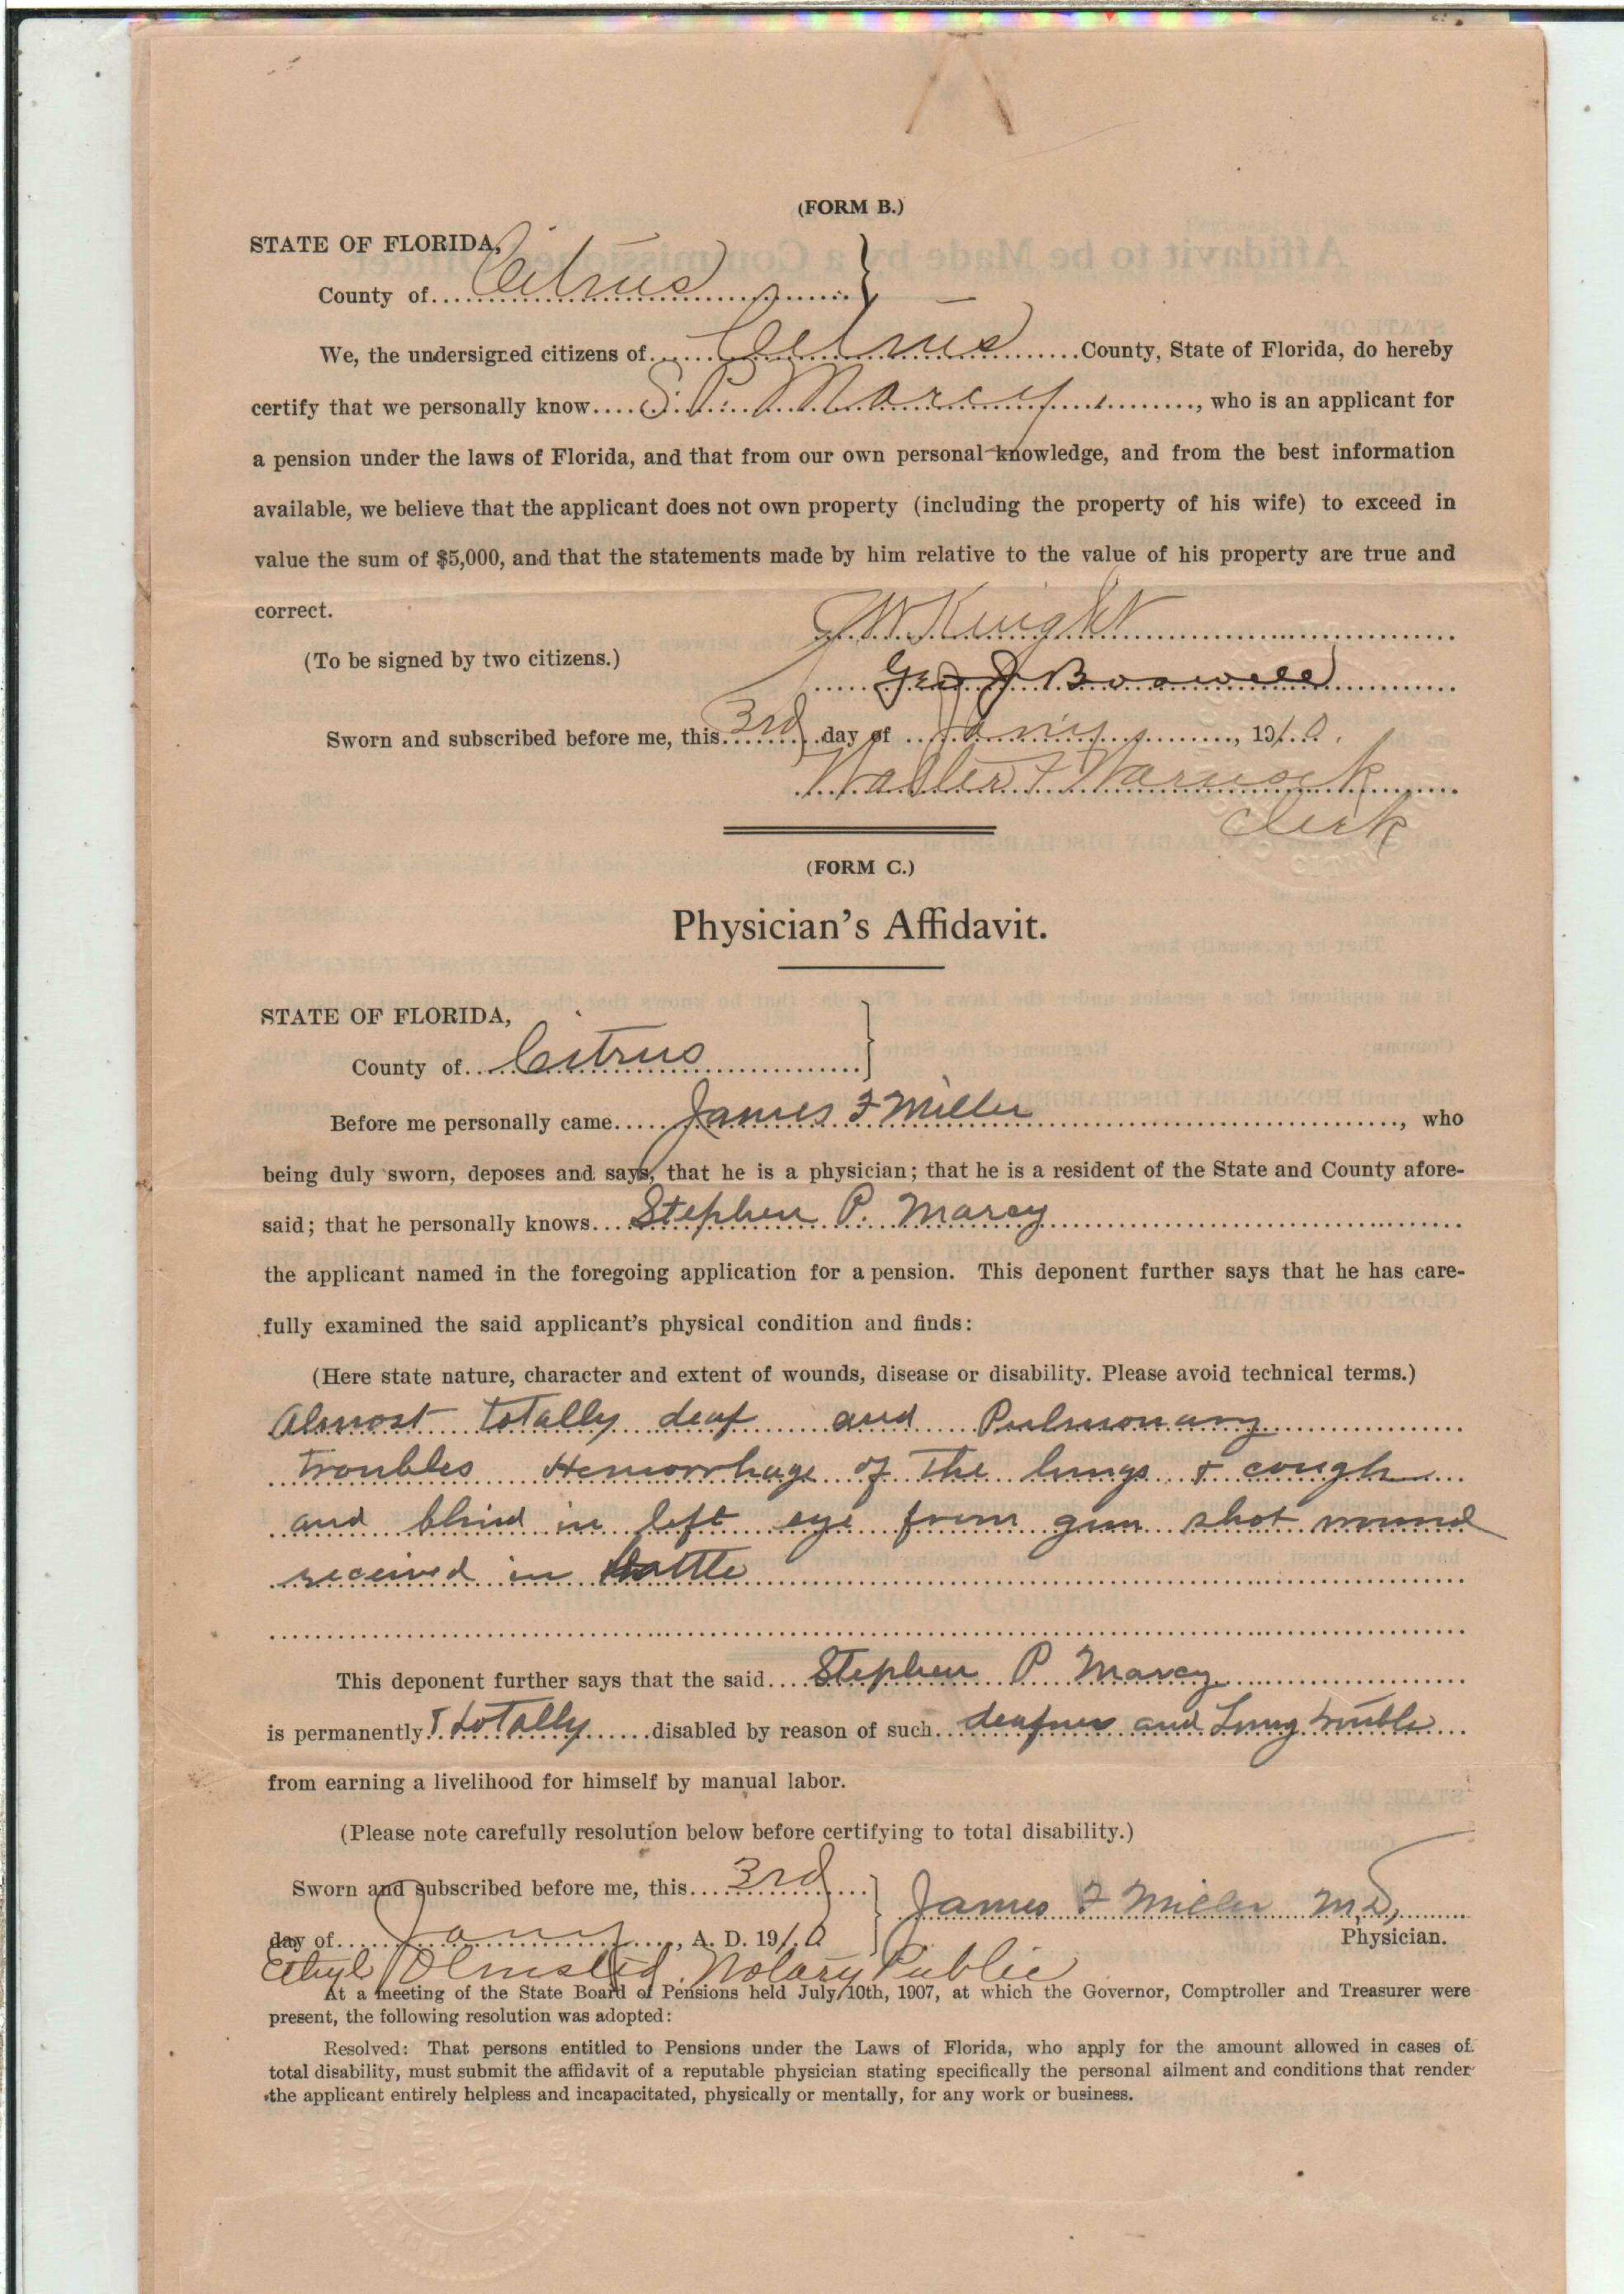 (FORM B.)
STATE OF FLORIDA,
County of Citrus
We, the undersigned citizens of Citrus County, State of Florida, do hereby
certify that we personally know S. P. Marcy, who is an applicant for
a pension under the laws of Florida, and that from our own personal knowledge, and from the best information
available, we believe that the applicant does not own property (including the property of his wife) to exceed in
value the sum of $5,000, and that the statements made by him relative to the value of his property are true and
correct.
W Knight
(To be signed by two citizens.)
Geo J Boswell
Sworn and subscribed before me, this 3rd day of Jany, 1910.
Walter F Warnock
Clerk
(FORM C.)
Physician's Affidavit.
STATE OF FLORIDA,
County of Citrus
Before me personally came James F Miller, who
being duly sworn, deposes and says, that he is a physician; that he is a resident of the State and County afore-
said; that he personally knows Stephen P. Marcy
the applicant named in the foregoing application for a pension. This deponent further says that he has care-
fully examined the said applicant's physical condition and finds:
(Here state nature, character and extent of wounds, disease or disability. Please avoid technical terms.)
Almost totally deaf and Pulmonary
troubles Hemorrhage of The lungs & cough
and blind in left eye from gun shot wound
received in Battle
This deponent further says that the said Stephen P Marcy
is permanently & totally disabled by reason of such deafness and Lung trouble
from earning a livelihood for himself by manual labor.
(Please note carefully resolution below before certifying to total disability.)
Sworn and subscribed before me, this 3rd
James F Miller M.D,
day of Jany, A. D. 1910
Physician.
Ethyl Olmsted Notary Public
At a meeting of the State Board of Pensions held July 10th, 1907, at which the Governor, Comptroller and Treasurer were
present, the following resolution was adopted:
Resolved: That persons entitled to Pensions under the Laws of Florida, who apply for the amount allowed in cases of
total disability, must submit the affidavit of a reputable physician stating specifically the personal ailment and conditions that render
the applicant entirely helpless and incapacitated, physically or mentally, for any work or business.